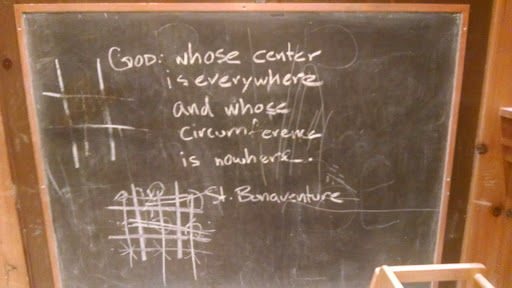 GOD: whose center
is everywhere
and whose
circumference
is nowhere.
St. Bonaventure